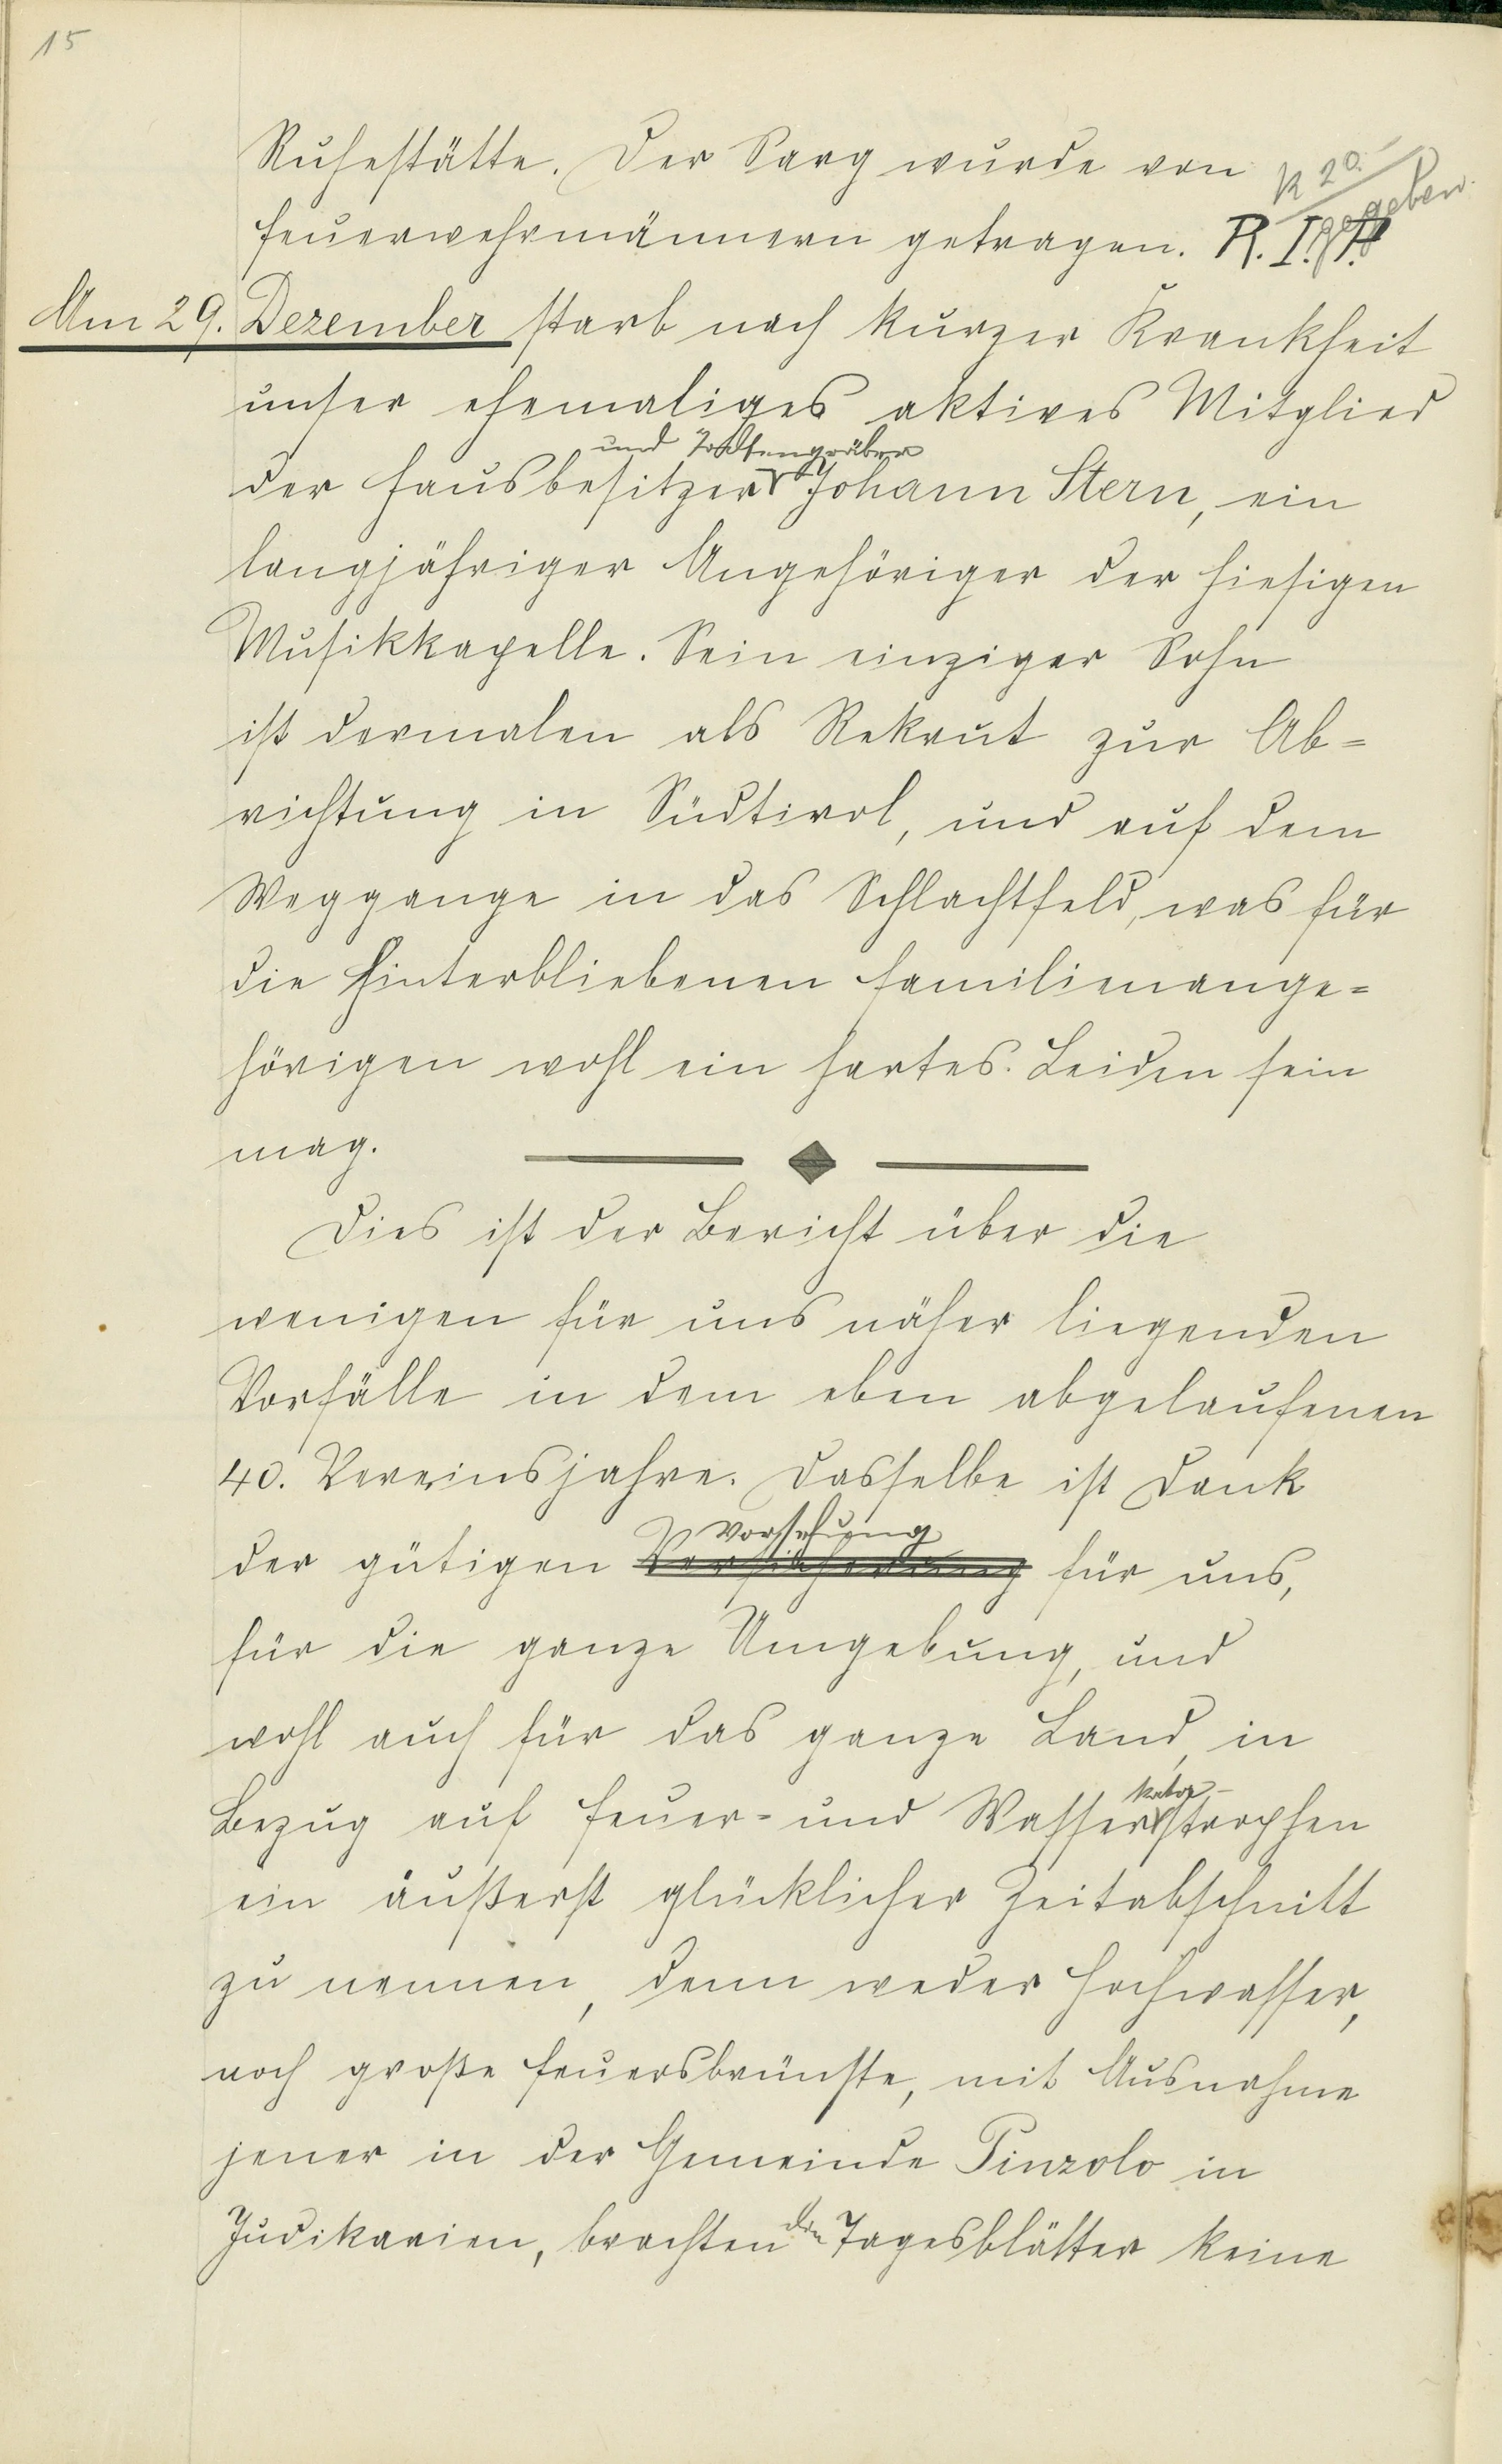 15
Ruhestätte. Der Sarg wurde von
K 20
gegeben.
Feuerwehrmännern getragen. R. I. P.
Am 29. Dezember starb nach kurzer Krankheit
unser ehemaliges aktives Mitglied
und Todtengräber
der Hausbesitzer Johann Stern, ein
langjähriger Angehöriger der hiesigen
Musikkapelle. Sein einziger Sohn
ist dermalen als Rekrut zur Ab=
richtung in Südtirol, und auf dem
Weggange in das Schlachtfeld, was für
die Hinterbliebenen Familienange=
hörigen wohl ein hartes Leiden sein
mag.
Dies ist der Bericht über die
wenigen für uns näher liegenden
Vorfälle in dem eben abgelaufenen
40. Vereinsjahre. Dasselbe ist Dank
Vorsehung
der gütigen Versicherung für uns,
für die ganze Umgebung, und
wohl auch für das ganze Land, in
kata-
Bezug auf Feuer- und Wasserstrophen
ein äußerst glücklicher Zeitabschnitt
zu nennen, denn weder Hochwasser,
noch große Feuersbrünste, mit Ausnahme
jener in der Gemeinde Pinzolo in
Judikarien, brachten die Tagesblätter keine